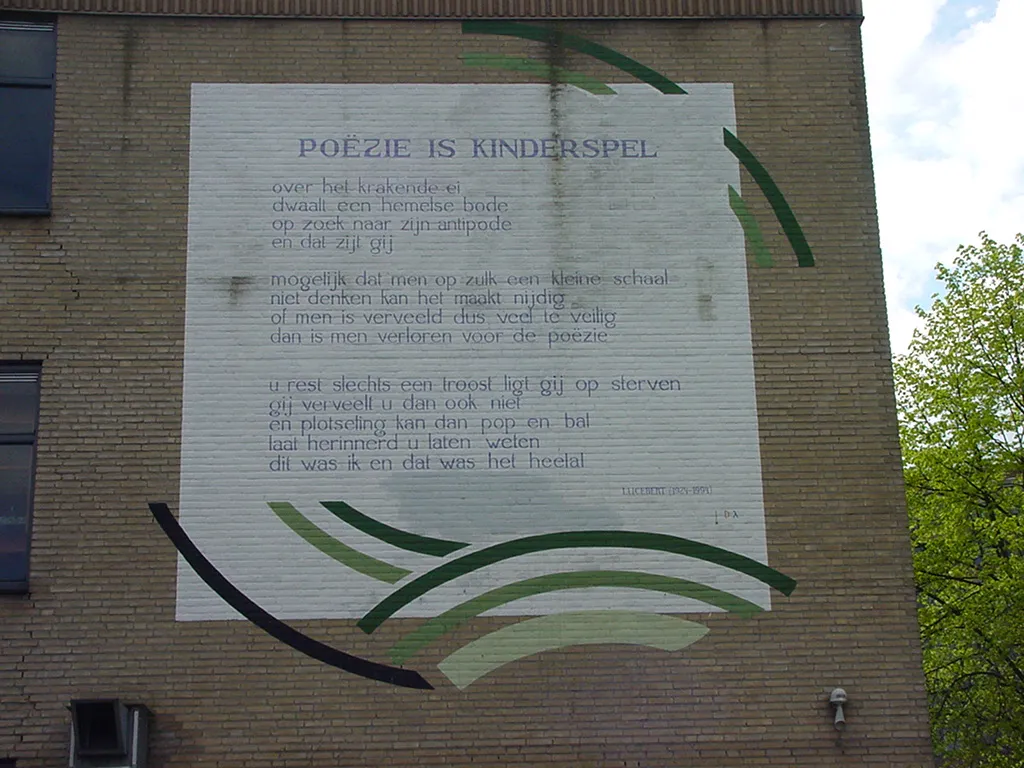 POËZIE IS KINDERSPEL
over het krakende ei
dwaalt een hemelse bode
op zoek naar zijn antipode
en dat zijt gij
mogelijk dat men op zulk een kleine schaal
niet denken kan het maakt nijdig
of men is verveeld dus veel te veilig
dan is men verloren voor de poëzie
u rest slechts een troost ligt gij op sterven
gij verveelt u dan ook niet
en plotseling kan dan pop en bal
laat herinnerd u laten weten
dit was ik en dat was het heelal
LUCEBERT (1924-1994)